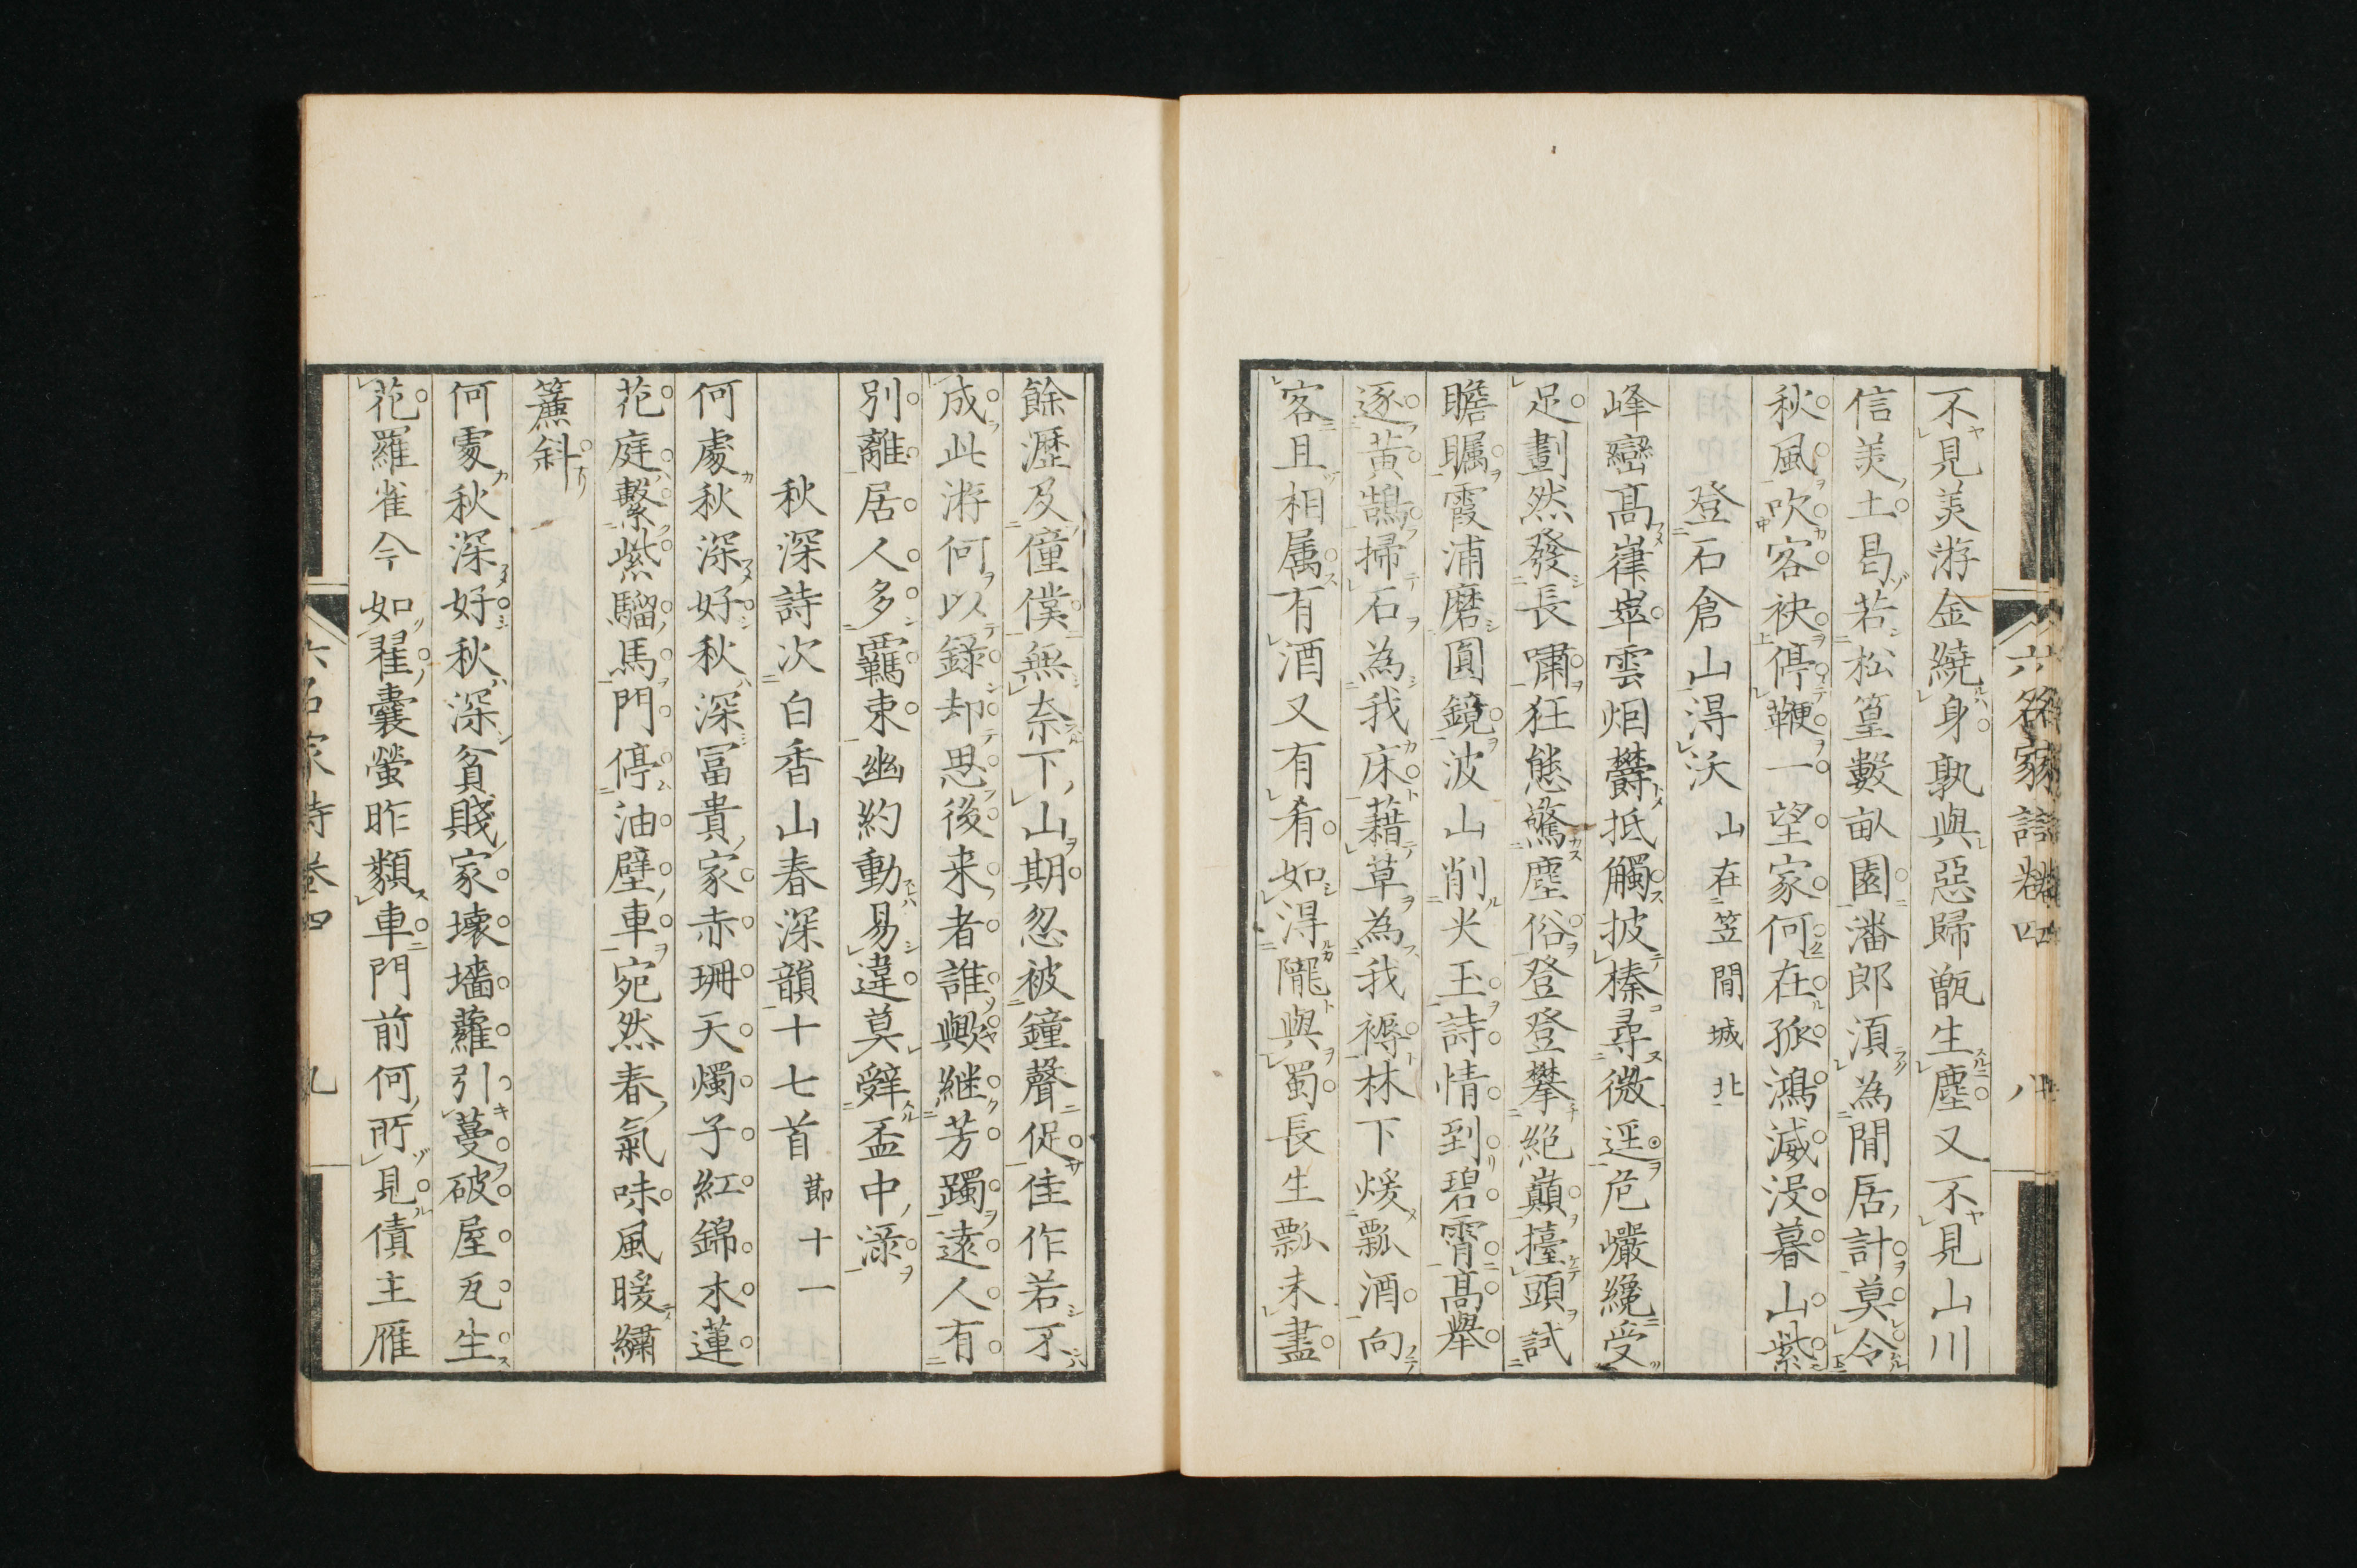 不見羙游金繞身孰與惡歸甑生塵又不見山川
信羙土曷若松篁數畝園潘郎須為閒居計莫令
秋風吹客袂停鞭一望家何在孤鴻滅沒暮山紫
登石倉山得沃 山在笠間城北
峰巒高嵂崒雲烟欝抵觸披榛尋微逕危巘纔受
足劃然發長嘯狂態驚塵俗登登攀絶巔擡頭試
瞻矚霞浦磨圓鏡波山削尖玉詩情到碧霄高舉
逐黃鵠掃石為我床藉草為我褥林下煖瓢酒向
客且相属有酒又有肴如得隴與蜀長生瓢未盡
餘瀝及僮僕無奈下山期忽被鐘聲促佳作若不
成此游何以錄却思後来者誰歟継芳躅遠人有
別離居人多覊束幽約動易違莫辤盃中渌
秋深詩次白香山春深韻十七首 節十一
何處秋深好秋深冨貴家赤珊天燭子紅錦木蓮
花庭繫紫騮馬門停油壁車宛然春氣味風暖繡
簾斜
何處秋深好秋深貧賤家壊墻蘿引蔓破屋瓦生
花羅雀今如翟嚢螢昨類車門前何所見債主雁
六名家詩巻四 八
六名家詩巻四 九